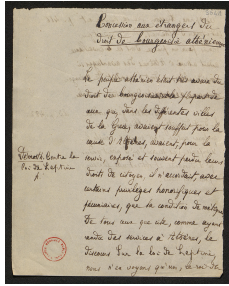 Concession aux étrangers du
droit de bourgeoisie athénienne
Le peuple athénien était
droit de bourgeoisie la plupart de
ceux qui, dans les différentes villes
de la Grèce, avaient souffert pour la
cause d'Athènes, avaient, pour la
servir, exposé et souvent perdu leurs
droits de citoyen. Il n'accordait avec
certains privilèges honorifiques et
pécuniaires, que la condition de métèque
De tous ceux que cite, comme ayant
rendu des services à Athènes, le
discours sur la loi de Leptine,
nous n'en voyons qu'un, le roi de
Démosth. Contre la
loi de Leptine